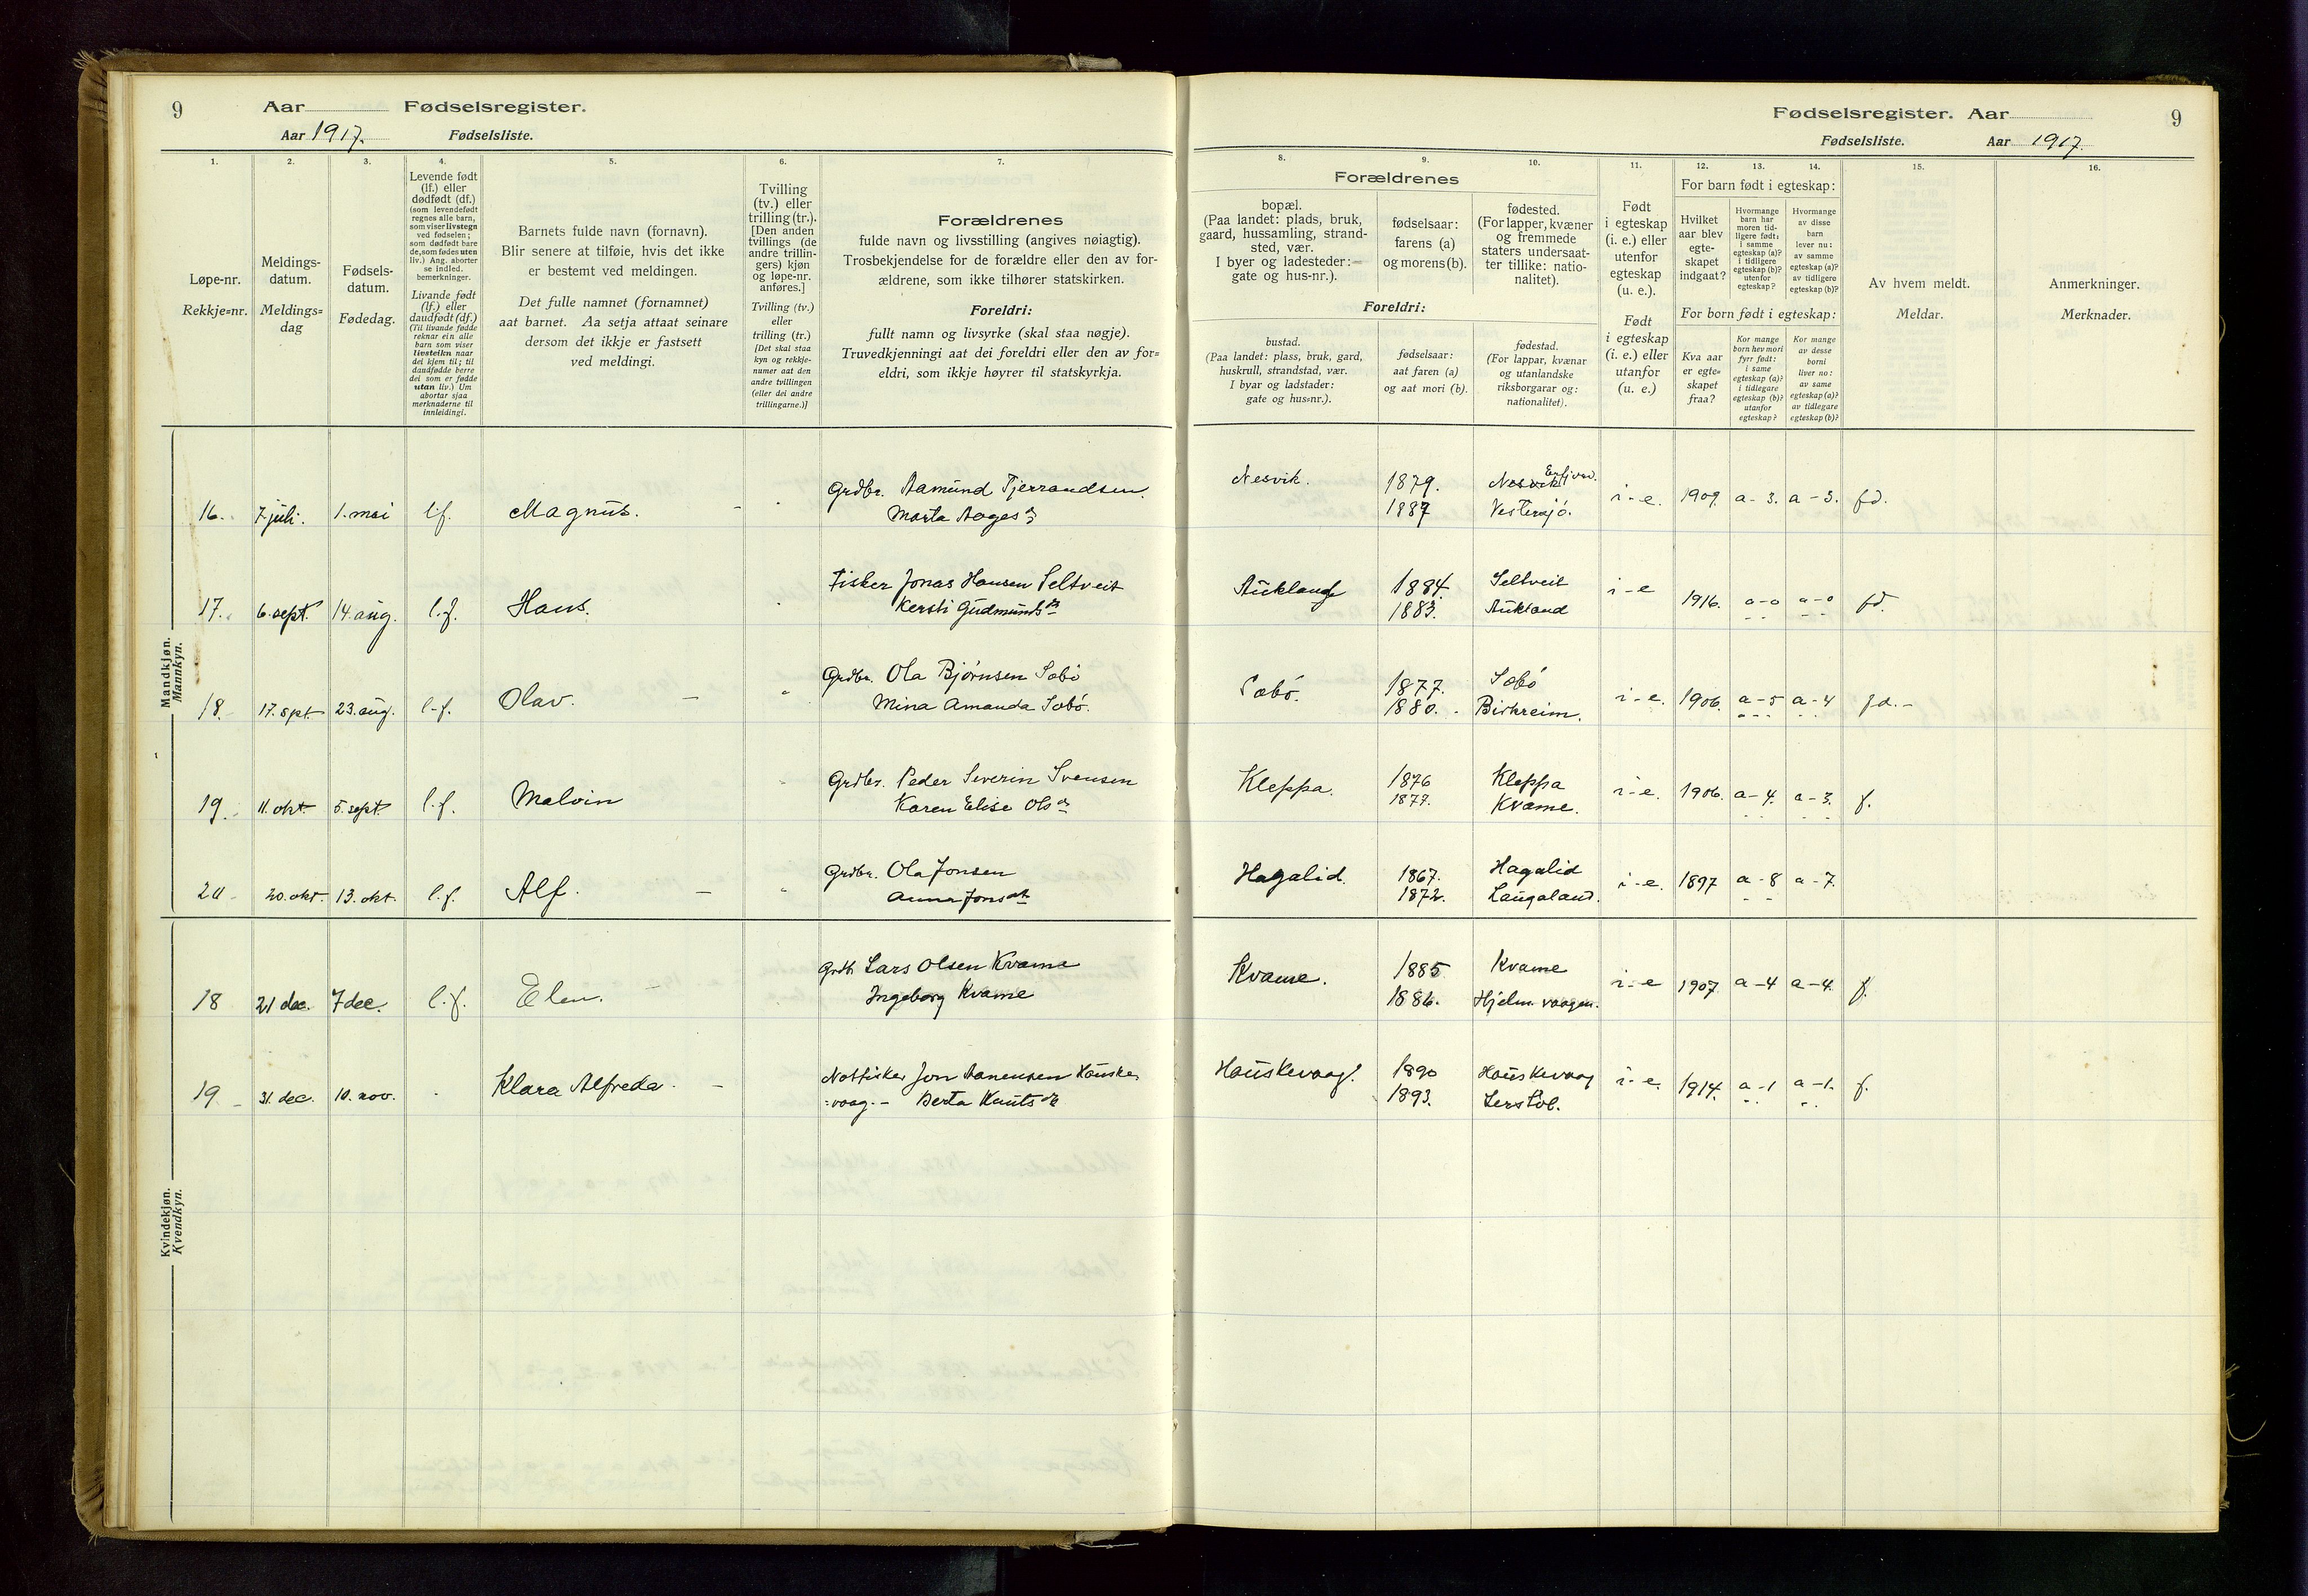 9 Aar Fødselsregister.
Aar 1917. Fødselsliste.
1. 2. 3. 4. 5. 6. 7.
Løpe-nr.
Rekkje=nr.
Meldings-
datum.
Meldings=
dag
Fødsels-
datum.
Fødedag.
Levende født
(lf.) eller
dødfødt (df.)
(som levendefødt
regnes alle barn,
som viser livstegn
ved fødselen;
som dødfødt bare
de, som fødes uten
liv.) Ang. aborter
se indled.
bemerkninger.
Livande født
(lf.) eller
daudfødt (df.)
(Til livande fødde
reknar ein alle
barn som viser
livsteikn naar
dei kjem til; til
daudfødde berre
dei som er fødde
utan liv.) Um
abortar sjaa
merknaderne til
innleidingi.
Barnets fulde navn (fornavn).
Blir senere at tilføie, hvis det ikke
er bestemt ved meldingen.
Det fulle namnet (fornamnet)
aat barnet. Aa setja attaat seinare
dersom det ikkje er fastsett
ved meldingi.
Tvilling
(tv.) eller
trilling (tr.).
[Den anden
tvillings (de
andre trillin-
gers) kjøn
og løpe-nr.
anføres.]
Tvilling (tv.)
eller
trilling (tr.)
[Det skal staa
kyn og rekkje-
numer aat den
andre tvillingen
(eller dei andre
trillingarne.)]
Forældrenes
fulde navn og livsstilling (angives nøiagtig).
Trosbekjendelse for de forældre eller den av for-
ældrene, som ikke tilhører statskirken.
Foreldri:
fullt namn og livsyrke (skal staa nøgje).
Truvedkjenningi aat dei foreldri eller den av for=
eldri, som ikkje høyrer til statskyrkja.
Mandkjøn.
Mannkyn.
16. 7. juli. 1. mai l.f. Magnus. - Grdbr. Aamund Tjerrandsen
Marta Aages dr
17. 6. sept. 14. aug. l.f. Hans. Fisker Jonas Hansen Seltveit
Kersti Gudmunds dtr
18. 17. spt. 23. aug. l.f. Olav. - Grdbr. Ola Bjørnsen Sæbö
Mina Amanda Sæbö.
19. 11. okt. 5. sept. l.f. Malvin Grdbr. Peder Severin Svensen
Karen Elise Ols dr
20 20. okt. 13. okt. l.f. Alf. - Grdbr. Ola Jonsen
Anna Jons dtr
Kvindekjøn.
Kvendkyn.
18 21 dec. 7 dec. l.f. Elen. Grdbr Lars Olsen Kvame
Ingeborg Kvame
19 31. dec. 10. nov. Klara Alfreda. - Notfisker Jon Aanensen Hauske
=vaag. - Berta Knuts dr
Fødselsregister. Aar 9
Fødselsliste. Aar 1917.
8. 9. 10. 11. 12. 13. 14. 15. 16.
Forældrenes
bopæl.
(Paa landet: plads, bruk,
gaard, hussamling, strand-
sted, vær.
I byer og ladesteder:
gate og hus-nr.).
fødselsaar:
farens (a)
og morens (b).
fødested.
(For lapper, kvæner
og fremmede
staters undersaat-
ter tillike: natio-
nalitet).
Foreldri:
bustad.
(Paa landet: plass, bruk, gard,
huskrull, strandstad, vær.
I byar og ladstader:
gate og hus=nr.).
fødselsaar:
aat faren (a)
og aat mori (b).
fødestad.
(For lappar, kvænar
og utanlandske
riksborgarar og:
nationalitet).
Født
i egteskap
(i. e.) eller
utenfor
egteskap
(u. e.).
Født
i egteskap
(i. e.) eller
utanfor
(u. e.)
For barn født i egteskap:
Hvilket
aar blev
egte-
skapet
indgaat?
Hvormange
barn har
moren tid-
ligere født:
i samme
egteskap (a)?
i tidligere
egteskap (b)?
utenfor
egteskap?
Hvormange
av disse
barn
lever nu:
av samme
egteskap (a)?
av tidligere
egteskap (b)?
For born født i egteskap:
Kva aar
er egte=
skapet
fraa?
Kor mange
born hev mori
fyrr født:
i same
egteskap (a)?
i tidlegare
egteskap (b)?
utanfor
egteskap?
Kor mange
av desse
borni
liver no:
av same
egteskap (a)?
av tidlegare
egteskap (b)?
Av hvem meldt.
Meldar.
Anmerkninger.
Merknader.
Nesvik. 1879. i-e. 1909. a-3. a-3. fd.
1887
1884. Seltveit i-e 1916. a-o a-o fd.
1883. Aukland
Sæbö. 1877. Sæbö i-e. 1906. a-5 a-4 fd. -
1880. Birkreim.
Kleppa. 1876 Kleppa i-e. 1906. a-4. a-3. f.
1877. Kvame.
Hagalid. 1867. Hagalid i-e. 1897 a-8 a-7.
1872. Laugaland.
Kvame. 1885 Kvame i-e 1907 a-4 a-4 f.
1886. Hjelmvaagen.
Hauskevaag. 1890 Hauskevaag i-e. 1914. a-1 a-1. f.
1893.